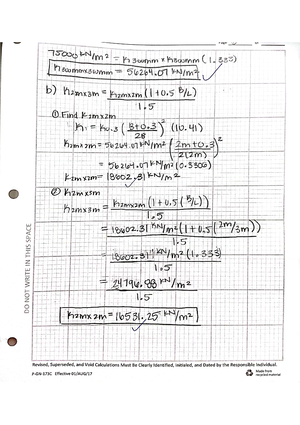 75000 KN/m² = K300mm x K300mm (1.333)
K300mmx300mm = 56264.07 KN/m²
b) K2mx3m = K2mx2m (1+0.5 B/L) / 1.5
① Find K2mx2m
K1 = K0.3 (B+0.3 / 2B)² (10.41)
K2mx2m = 56264.07 KN/m² (2m+0.3 / 2(2m))²
= 56264.07 KN/m² (0.3306)
K2mx2m = 18602.31 KN/m²
② K2mx3m
K2mx3m = K2mx2m (1+0.5 (B/L)) / 1.5
= 18602.31 KN/m² (1+0.5 (2m/3m)) / 1.5
= 18602.31 KN/m² (1.333) / 1.5
= 24796.88 KN/m² / 1.5
K2mx2m = 16531.25 KN/m²
DO NOT WRITE IN THIS SPACE
Revised, Superseded, and Void Calculations Must Be Clearly Identified, Initialed, and Dated by the Responsible Individual.
F-GN-373C Effective 01/AUG/17
Made from recycled material